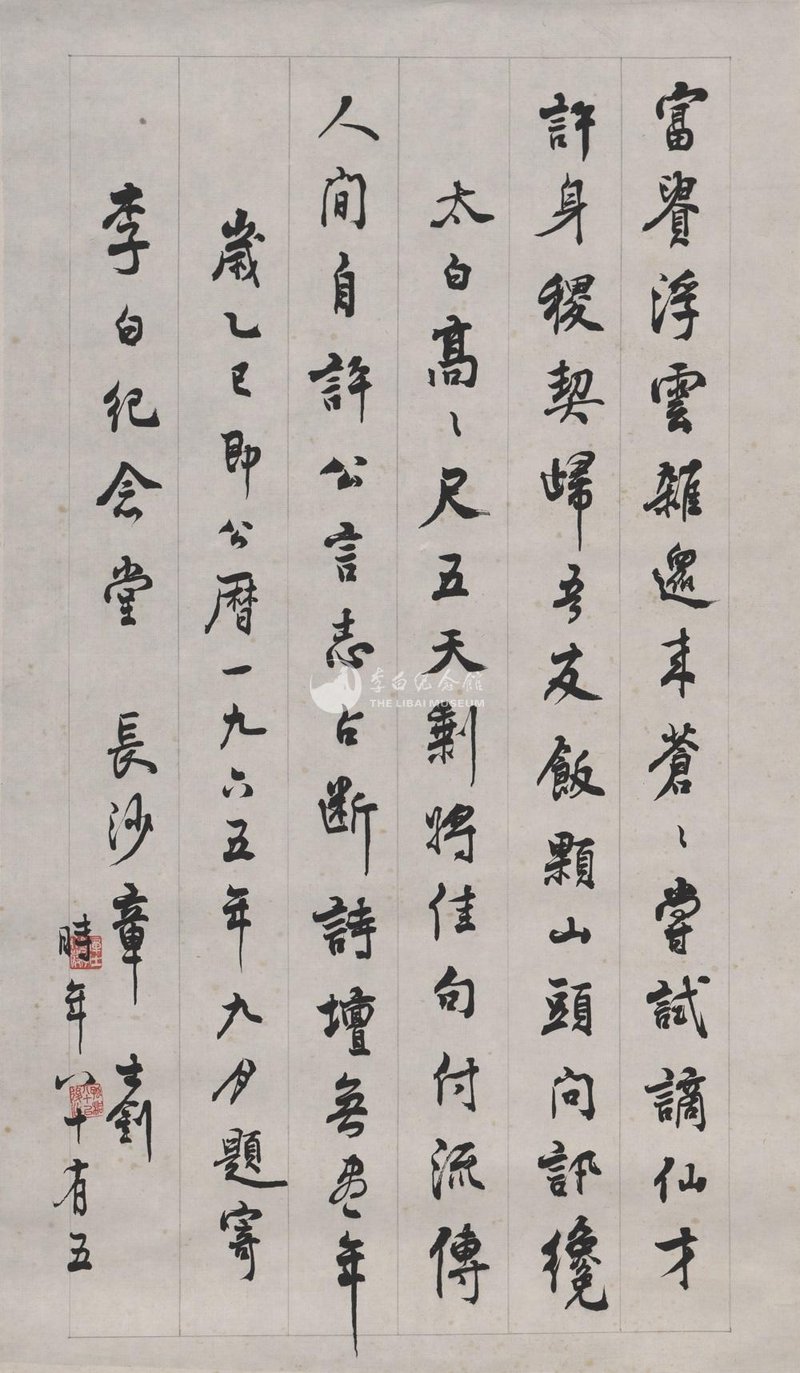 富貴浮雲雜遝来蒼〻嘗試謫仙才
許身稷契歸吾友飯顆山頭問訊纔
太白高〻尺五天剩將佳句付流傳
人間自許公言志占断詩壇無盡年
歲乙巳即公曆一九六五年九月題寄
李白纪念堂 長沙章士釗
時年八十有五
李白纪念館
THE LIBAI MUSEUM